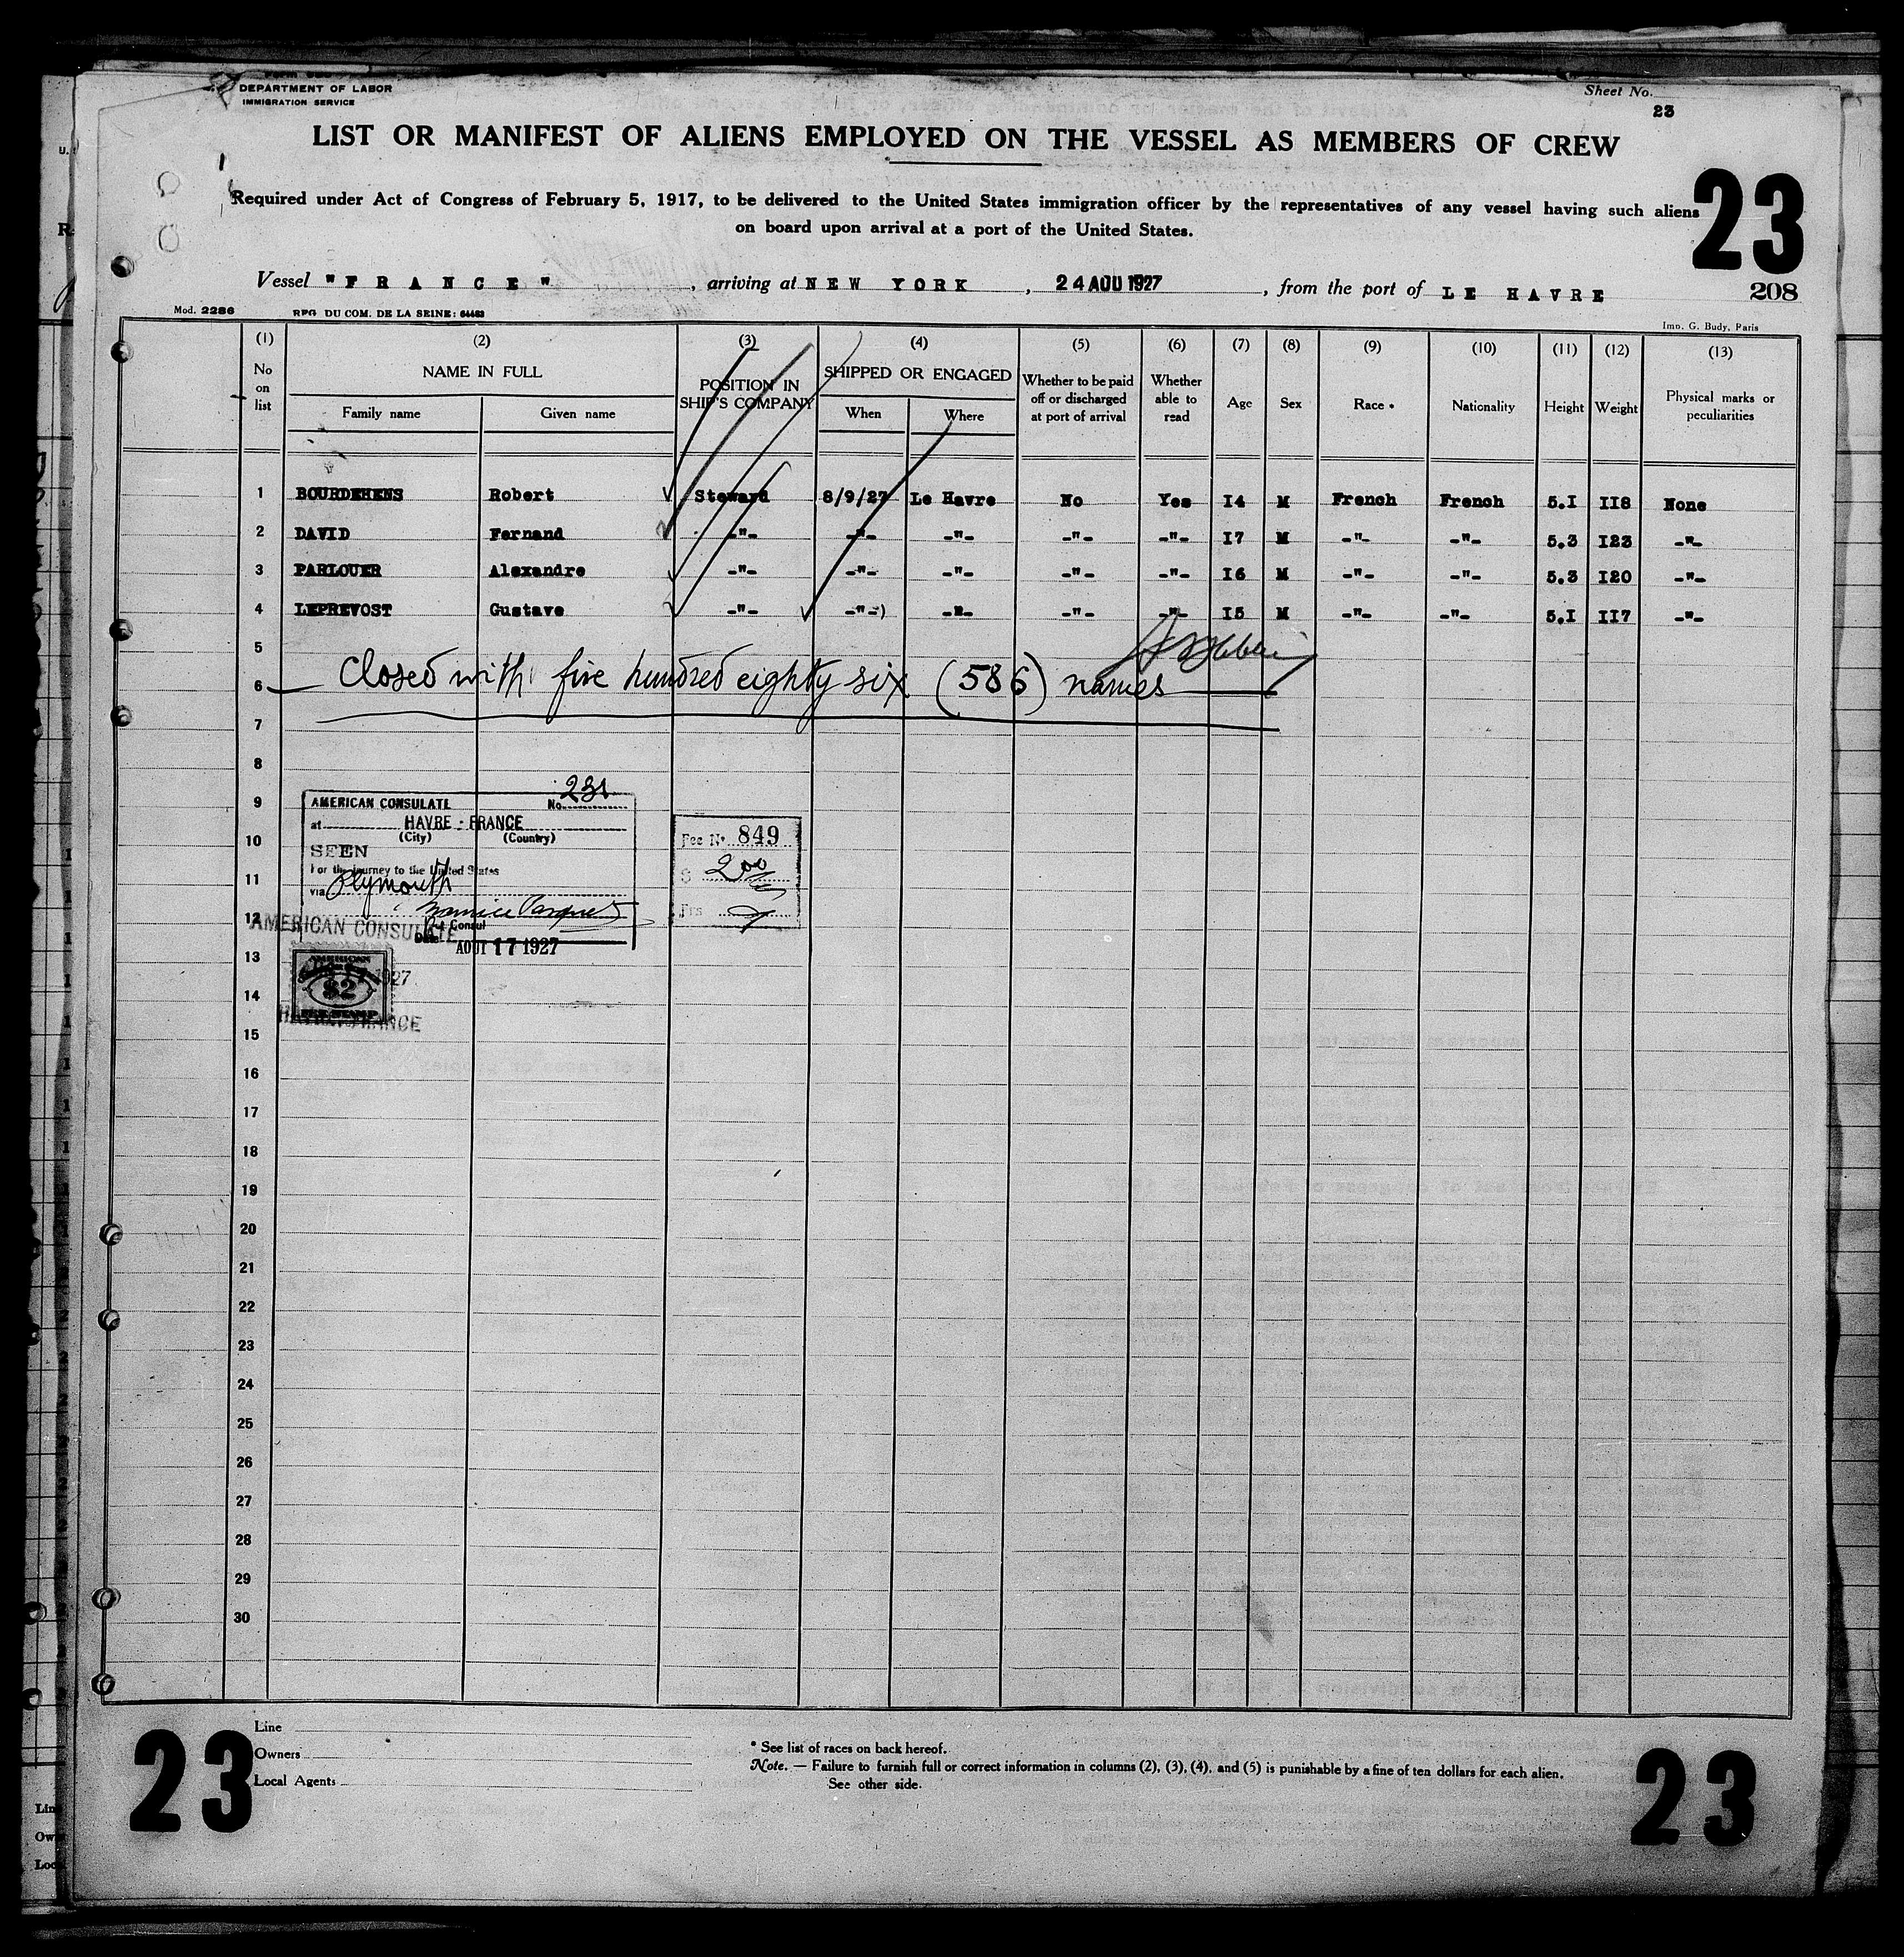 DEPARTMENT OF LABOR
IMMIGRATION SERVICE
Sheet No.
23
LIST OR MANIFEST OF ALIENS EMPLOYED ON THE VESSEL AS MEMBERS OF CREW
23
Required under Act of Congress of February 5, 1917, to be delivered to the United States immigration officer by the representatives of any vessel having such aliens
on board upon arrival at a port of the United States.
Vessel "FRANCE", arriving at NEW YORK, 24 AOU 1927, from the port of LE HAVRE
208
Mod. 2286 RPG DU COM. DE LA SEINE: 64463 Imp. G. Budy, Paris
(1) (2) (3) (4) (5) (6) (7) (8) (9) (10) (11) (12) (13)
No on list NAME IN FULL POSITION IN SHIP'S COMPANY SHIPPED OR ENGAGED Whether to be paid off or discharged at port of arrival Whether able to read Age Sex Race * Nationality Height Weight Physical marks or peculiarities
Family name Given name When Where
1 BOURDEHENS Robert Steward 8/9/27 Le Havre No Yes I4 M French French 5.I II8 None
2 DAVID Fernand -"- -"- -"- -"- -"- I7 M -"- -"- 5.3 I23 -"-
3 PARLOUER Alexandre -"- -"- -"- -"- -"- I6 M -"- -"- 5.3 I20 -"-
4 LEPREVOST Gustave -"- -"- -"- -"- -"- I5 M -"- -"- 5.I II7 -"-
5
6 Closed with five hundred eighty six (586) names
7
8
9
10
11
12
13
14
15
16
17
18
19
20
21
22
23
24
25
26
27
28
29
30
AMERICAN CONSULATE No. 231
at HAVRE - FRANCE
(City) (Country)
SEEN
For the journey to the United States
via Plymouth
Consul
Date AOUT 17 1927
AMERICAN CONSULATE
AMERICAN
$2
FEE STAMP
HAVRE, FRANCE
Fee No. 849
$ 2.00
Frs
23
Line
Owners
Local Agents
* See list of races on back hereof.
Note. — Failure to furnish full or correct information in columns (2), (3), (4), and (5) is punishable by a fine of ten dollars for each alien.
See other side.
23